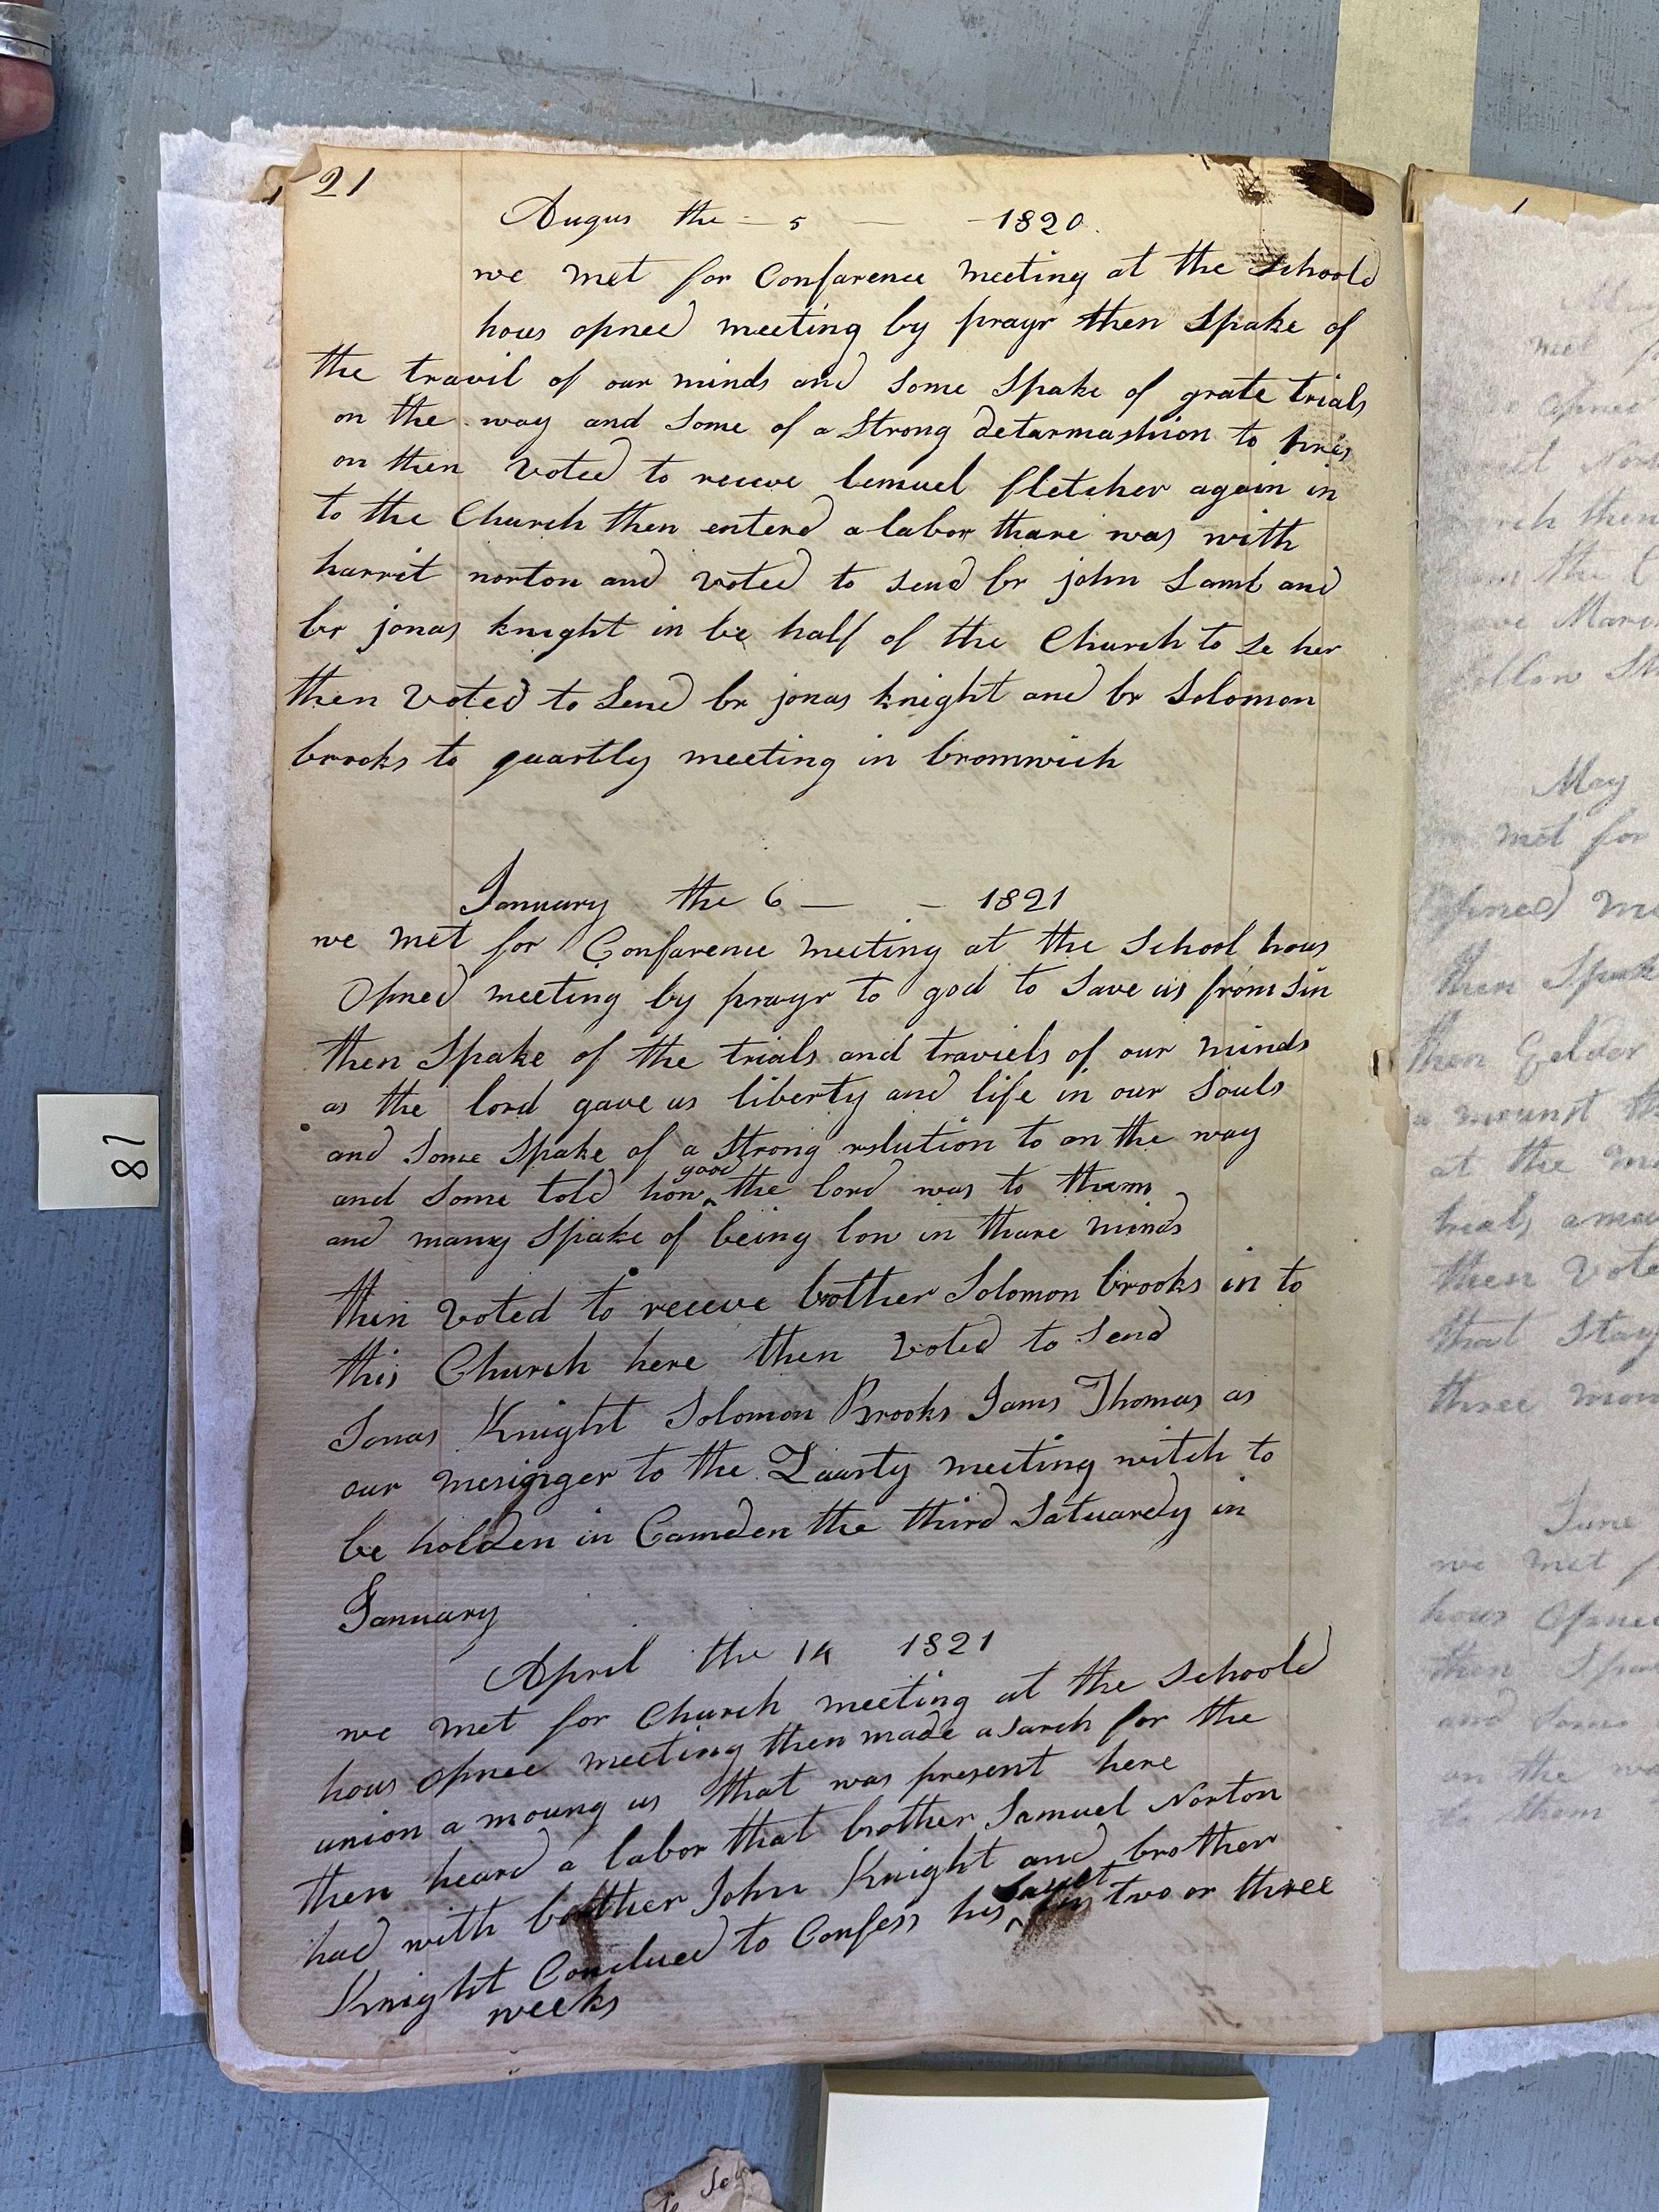 21
Augus the - 5 — - 1820.
we met for Confarence meeting at the Schoold
hous opned meeting by prayr then Spake of
the travil of our minds and some Spake of grate trials
on the way and some of a Strong detarmashion to
on then voted to receve lemuel fletcher again in
to the Church then enterd a labor thare was with
harrit norton and voted to send br john Lamb and
br jonas knight in be half of the Church to se her
then voted to Send br jonas knight and br Solomon
brooks to quartly meeting in bromwich
January the 6 — - 1821
we met for Confarence meeting at the School hous
Opned meeting by prayr to god to Save us from Sin
then Spake of the trials and traviels of our minds
as the lord gave us liberty and life in our Souls
and Some Spake of a Strong rslution to on the way
and Some told how good the lord was to them
and many Spake of being low in thare minds
then voted to receve brother Solomon brooks in to
this Church here then voted to Send
Jonas Knight Solomon Brooks Jams Thomas as
our to the Quarty meeting witch to
be holden in Camden the third Satuardy in
January
April the 14 1821
we met for Church meeting at the Schoold
hous Opned meeting then made a Sarch for the
union a moung us that was present here
then heard a labor that brother Samuel Norton
had with brother John Knight and brother
Knight Conclued to Confess his in two or three
weeks
81
met
May
met for
then Spake
then Eelder
at the
then vote
that Stay
three
June
we met
hous Opned
to them